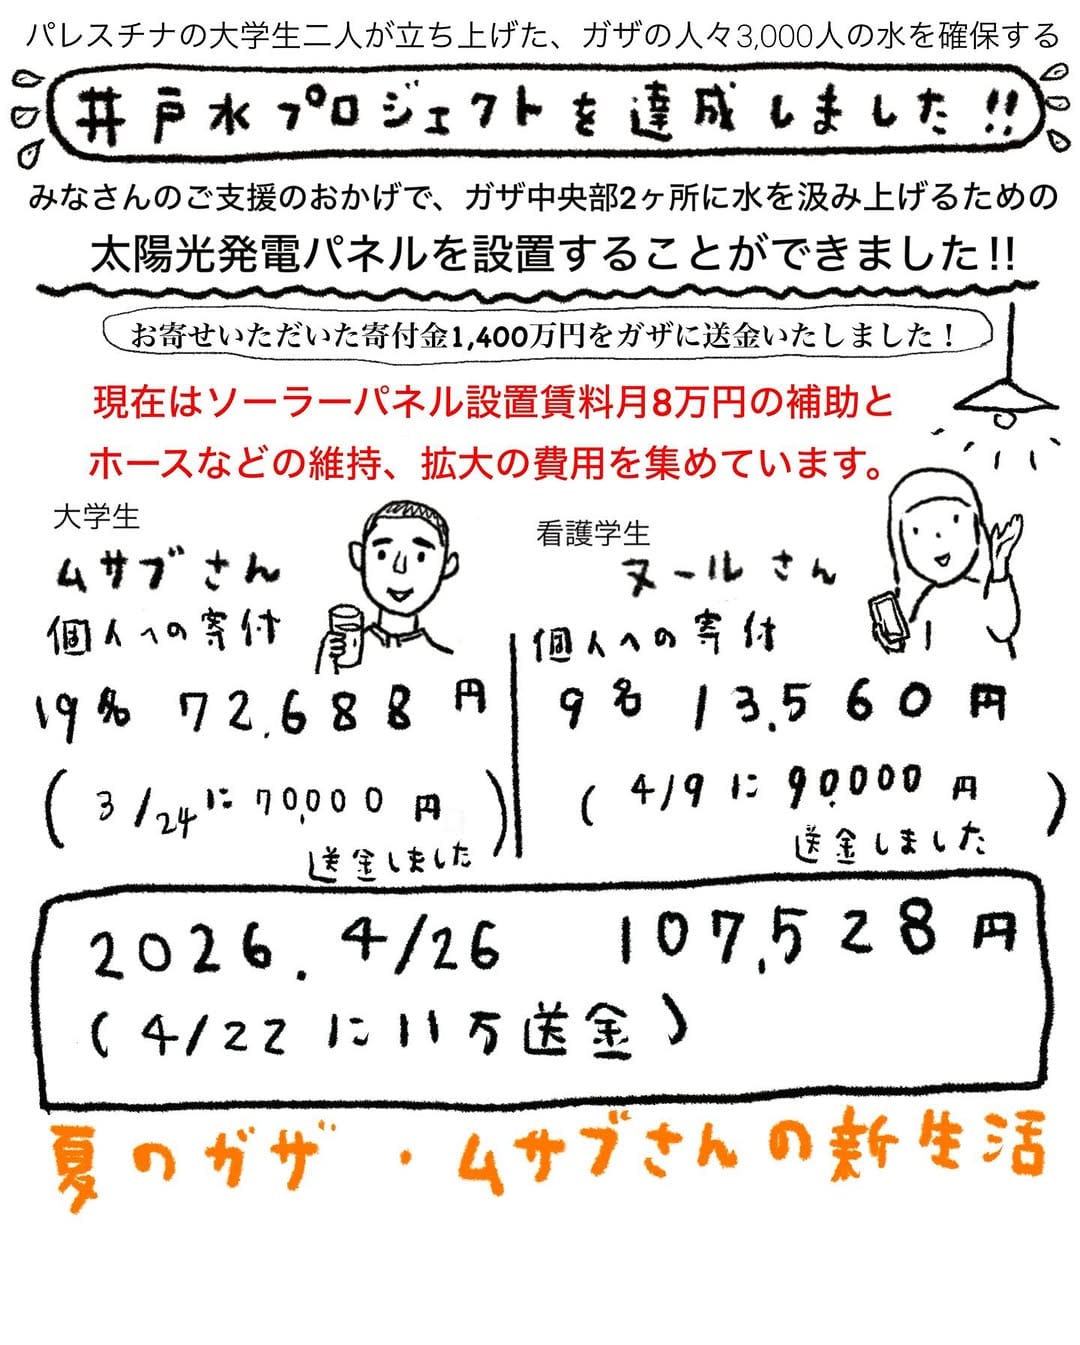 パレスチナの大学生二人が立ち上げた、ガザの人々3,000人の水を確保する
井戸水プロジェクトを達成しました!!
みなさんのご支援のおかげで、ガザ中央部2ヶ所に水を汲み上げるための
太陽光発電パネルを設置することができました!!
お寄せいただいた寄付金1,400万円をガザに送金いたしました！
現在はソーラーパネル設置賃料月8万円の補助と
ホースなどの維持、拡大の費用を集めています。
大学生
ムサブさん
個人への寄付
19名 72,688円
(3/24に70,000円
送金しました)
看護学生
ヌールさん
個人への寄付
9名 13,560円
(4/9に90,000円
送金しました)
2026. 4/26 107,528円
(4/22に11万送金)
夏のガザ・ムサブさんの新生活